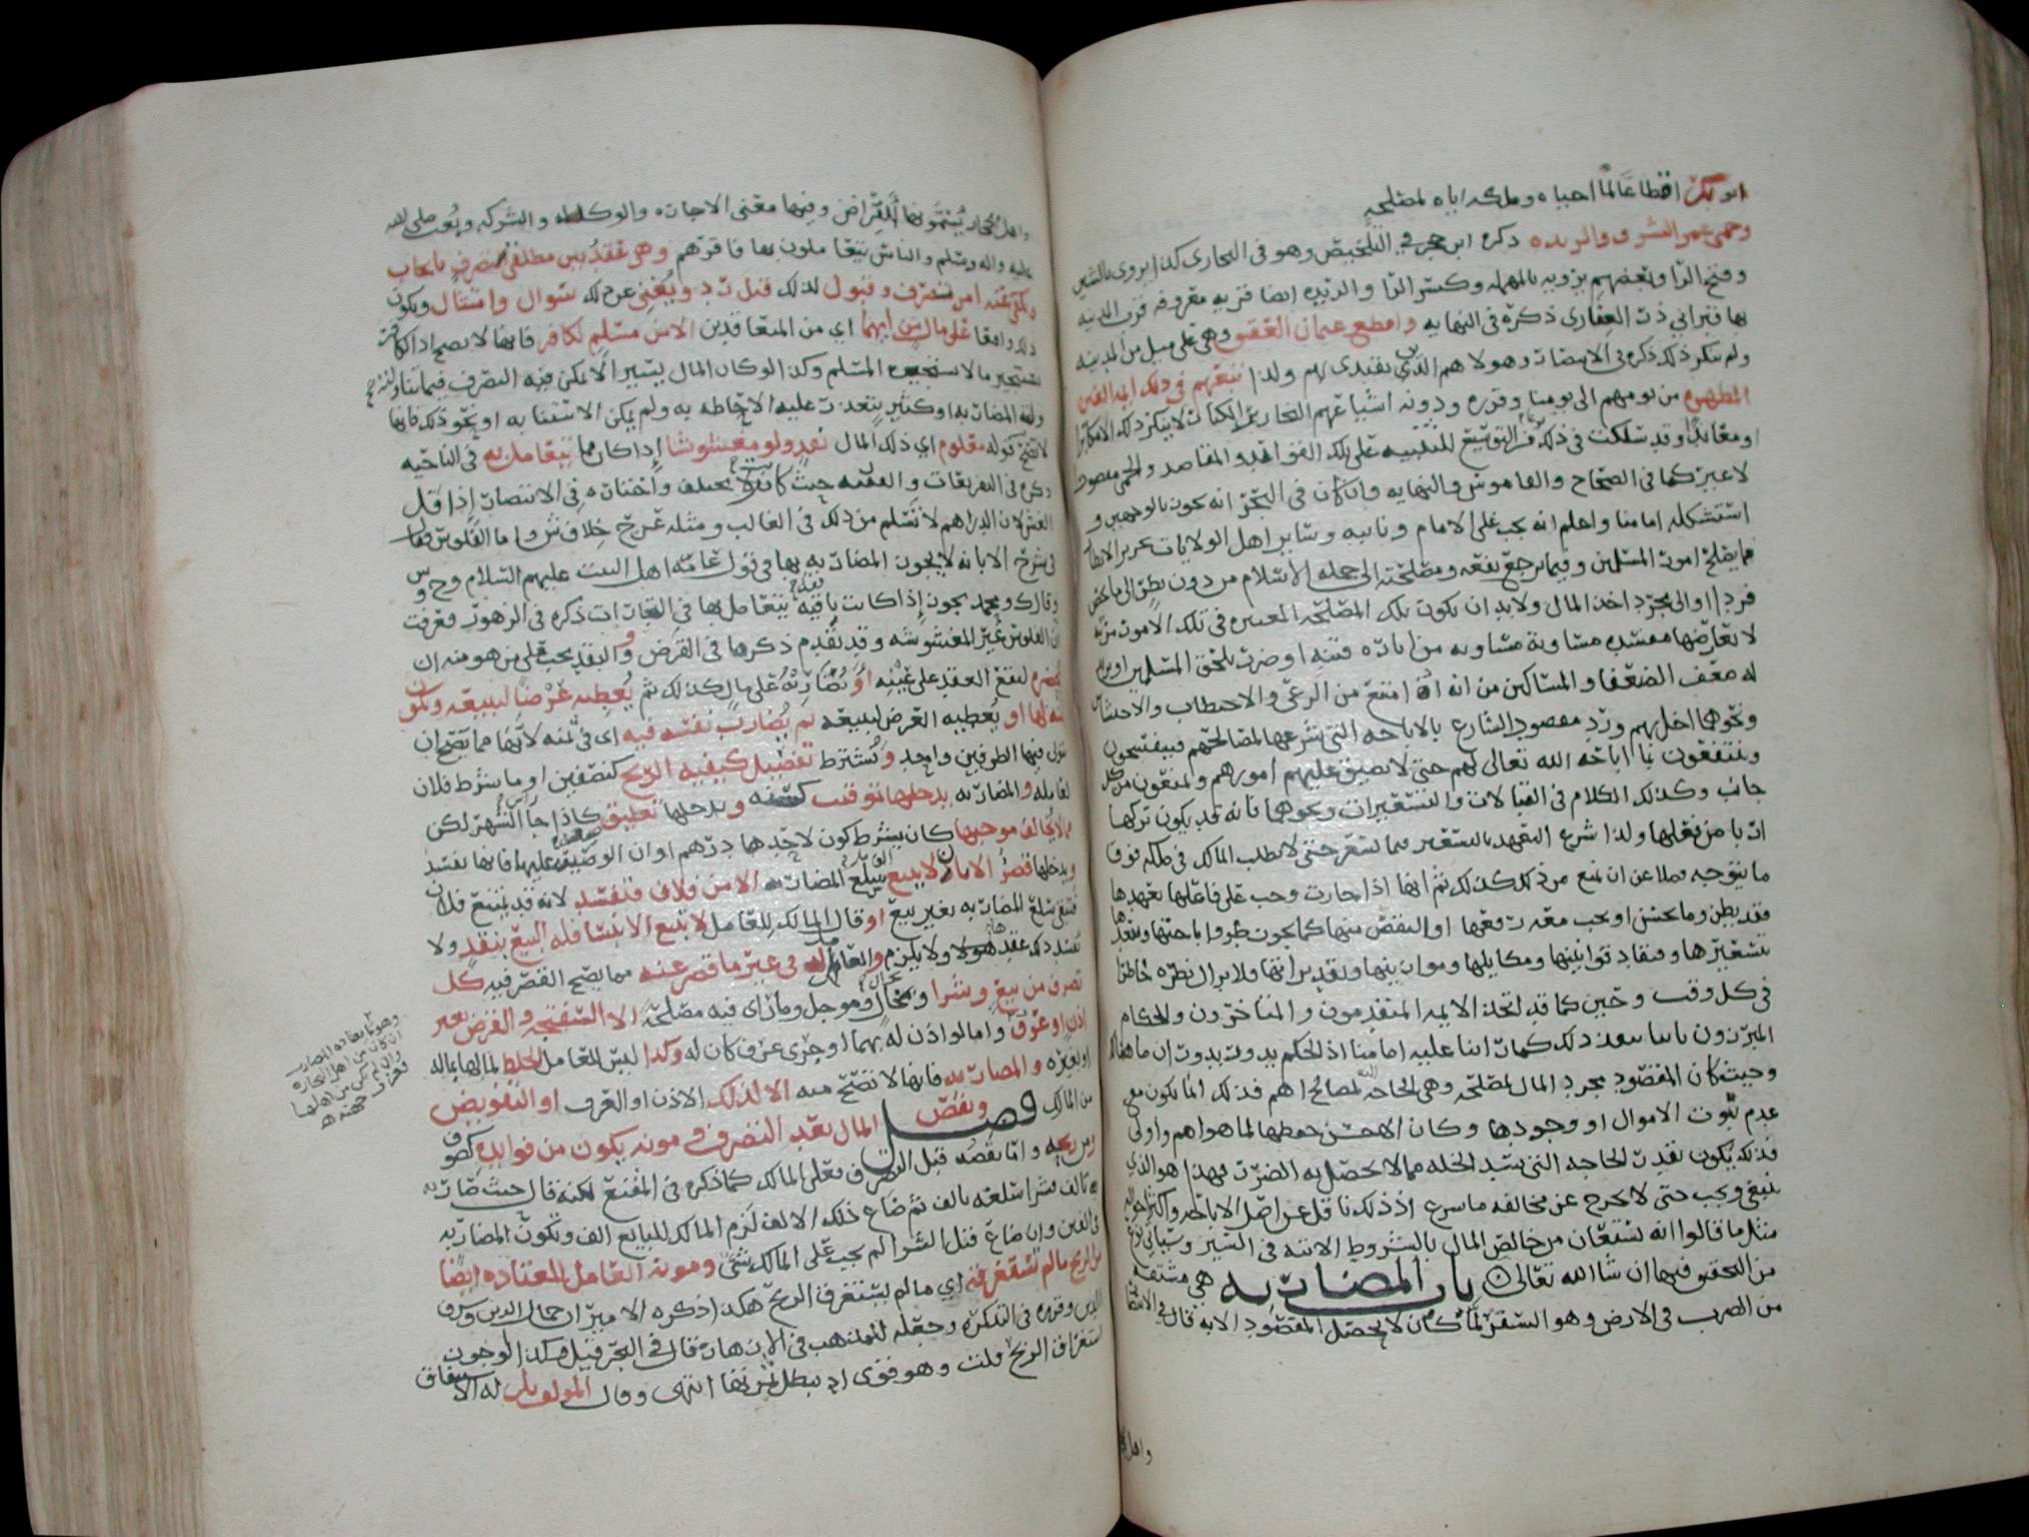 ابو بكر اقطاعا لما احياه وملكه اياه لمصلحة
وحمى عمر الشرف والربذه ذكره ابن حجر في التلخيص وهو في البخاري كذا يروى بالشين
وفتح الرا وبعضهم يرويه بالمهمله وكسر الرا والربذه ايضا قريه معروفه قرب المدينه
بها قبر ابي ذر الغفاري ذكره في النهايه واقطع عثمان العقيق وهي على ميل من المدينه
ولم ينكر ذلك ذكره في الانتصار وهولا هم الذين يقتدى بهم ولذا تبعهم في ذلك ايمه
من يومهم الى يومنا وقرره ودونه اشياعهم لا ينكر ذلك الا مكابرا
او معاندا وقد سلكت في ذلك للتنبيه على تلك الفوائد والمقاصد والحمى مقصور
لا غير كما في الصحاح والقاموس والنهايه وان كان في البحر انه يجوز بالوجهين و
استشكله امامنا واعلم انه يجب على الامام ونايبه وساير اهل الولايات تحرير الانظار
فيما يصلح امور المسلمين وفيما يرجع نفعه ومصلحته الى جملة الاسلام من دون نظر الى ما يخص
فردا او الى مجرد اخذ المال ولا بد ان يكون تلك المصلحه المعتبره في تلك الامور
لا تعارضها مفسده مساوية من اثاره فتنه او ضرر يلحق المسلمين
له ضعف الضعفا والمساكين من انه اذا امتنع من الرعي والاحتطاب والاحتشاش
ونحوها اخل بهم ورد مقصود الشارع بالاباحه التي شرعها لمصالحهم
وينتفعون بما اباحه الله تعالى لهم حتى لا تضيق عليهم امورهم والمنعون من كل
جانب وكذلك الكلام في القبالات والتسعيرات ونحوها فانه قد يكون تركها
ارتاض من فعلها ولذا شرع التعهد بالتسعير فيما لتسعر حتى لا يطلب المالك في ملكه فوق
ما يتوجه فضلا عن ان يمنع من ذلك كذلك ثم انها اذا جازت وجب على فاعلها تعهدها
فقد يطرى وما يحسن او يجب معه رفعها او النقض منها كما يجوز
تسعيرها وتفقد قوانينها ومكايلها وموازينها وتقديراتها ولا يزال نظره خاطرا
في كل وقت وحين كما قد اتخذ الايمه المتقدمون والمتاخرون والحكام
المبرزون ذلك كما راينا عليه امامنا اذ الحكم يدور
وحيث كان المقصود مجرد المال لمصلحه وهي الحاجه لمصالح اهم فذلك انما يكون مع
عدم ثبوت الاموال او وجودها وكان الاحسن حفظها لما هو اهم واولى
فذلك يكون بقدر الحاجه التي تسد الخله مما لا يحصل به الضرر فهذا هو الذي
ينبغي ويجب حتى لا يخرج عن مخالفه ما شرع اذ ذلك ناقل عن اصل الاباحه
مثل ما قالوا انه يستعان من خالص المال بالشروط الاتيه في السير وسياتي نوع
من التحقيق فيها ان شا الله تعالى باب المضاربه هي مشتقه
من الضرب في الارض وهو السفر لما كان لا يحصل المقصود الا به قال في الانتصار
واهل
واهل الحجاز يسمونها القراض وفيها معنى الاجاره والوكاله والشركه وبعث صلى الله
عليه واله وسلم والناس يتعاملون بها فاقرهم وهي عقد بين مطلقي التصرف بايجاب
يكفي عنه امر تصرف وقبول لذلك قبل رد ويغني عن ذلك سوال وامتثال ويكون
ذلك واقعا على مال من ايهما اي من المتعاقدين الا من مسلم لكافر فانها لا تصح اذ الكافر
يستجيز ما لا يستجيزه المسلم وكذا لو كان المال يسيرا لا يمكن فيه التصرف فيما
به او كثير يتعذر عليه الاحاطه به ولم يمكن الانتفاع به او نحو ذلك فانها
لا تصح قوله معلوم اي ذلك المال نقد ولو مغشوشا اذا كان مما يتعامل به في الناحيه
ذكره في التعريفات والفقيه حيث كان لا يختلف واختاره في الانتصار اذا قل
الغش لان الدراهم لا تسلم من ذلك في الغالب ومثله خلاف ش واما الفلوس فقال
في شرح الابانه لا يجوز المضاربه بها في قول عامة اهل البيت عليهم السلام وح و س
وقال ك ومحمد يجوز اذا كانت باقيه يتعامل بها في التجارات ذكره في الزهور فعرفت
ان الفلوس غير المغشوشه وقد تقدم ذكرها في القرض والنقد يجب على من هو منه ان
يحضره ليقع العقد على عينه او تضاربه على مال كذلك ثم يعطيه عرضا ليبيعه ويكون
ثمنه لها او يعطيه العرض ليبيعه ثم يضارب نفسه فيه اي في ثمنه لانها مما يصح ان
يتولى فيها الطرفين واحد ويشترط تفصيل كيفيه الربح كنصفين او ما شرط فلان
لعامله والمضاربه يدخلها توقيت كسنه ويدخلها تعليق كاذا جا الشهر لكن
ما لا يخالف موجبها كان يشترط كون لاحدهما درهم او ان الوضيعه عليهما فانها تفسد
ويدخلها قصر الا بان لا يبيع سلع المضاربه الا من فلان فتفسد لانه قد يمتنع فلان
فتبقى سلع المضاربه بغير بيع او قال المالك للعامل لا تبع الا نسا فله البيع بنقد ولا
تفسد وكذا عقدها ولا يلزم والعامل في غير ما قصر عنه مما يصح القصر فيه كل
تصرف من بيع وشرا وبحال وموجل وما راى فيه مصلحه الا السفتجه والقرض بغير
اذن او عرف واما لو اذن له بهما او جرى عرف كان له وكذا ليس للعامل الخلط لمالها بماله
او بغيره والمضاربه فانها لا تصح منه الا لذلك الاذن او العرف او التفويض
من المالك فصل وتقص المال بعد التصرف ومونه يكون من فوايده كصوف
من ربحه واما نقصه قبل التصرف فعلى المالك كما ذكره في المقنع لكنه قال حيث ضاربه
بالف فشرا سلعه بالف ثم ضاع ذلك الالف لزم المالك للبايع الف وتكون المضاربه
في الفين وان ضاع قبل الشرا لم يجب على المالك شي ومونه العامل المعتاده ايضا
من الربح ما لم تستغرقه اي ما لم يستغرق الربح هكذا ذكره الامير ان جمال الدين وشرف
الدين وقرره في التذكره وجعله للمذهب في الازهار قال في البحر قيل هكذا لو جوزنا
استغراق الربح قلت وهو قوي اذ تبطل ثمرتها انتهى وقال المولف بل له الاستنفاق
وهو ما يعتاده المضارب
ان كان من اهل التجاره
وان لم يكن من اهلها